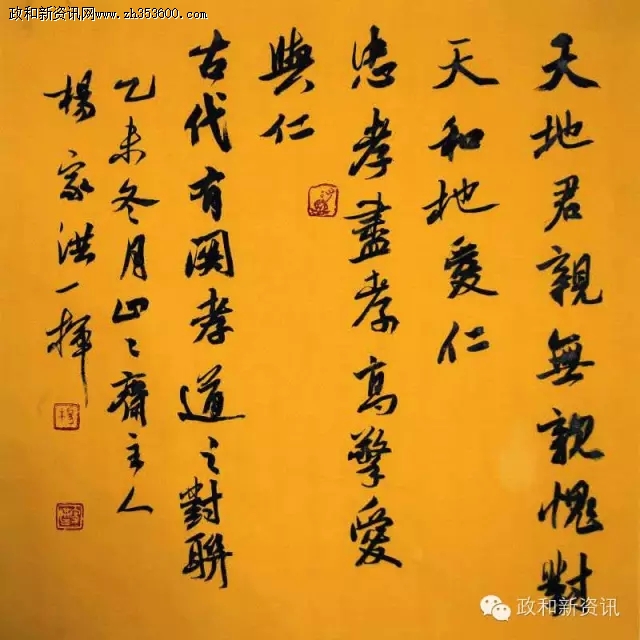 政和新资讯网www.zh353600.com
天地君親無親愧對
天和地愛仁
忠孝盡孝高擎愛
與仁
古代有関孝道之對聯
乙未冬月山之齋主人
楊家洪一揮
政和新资讯